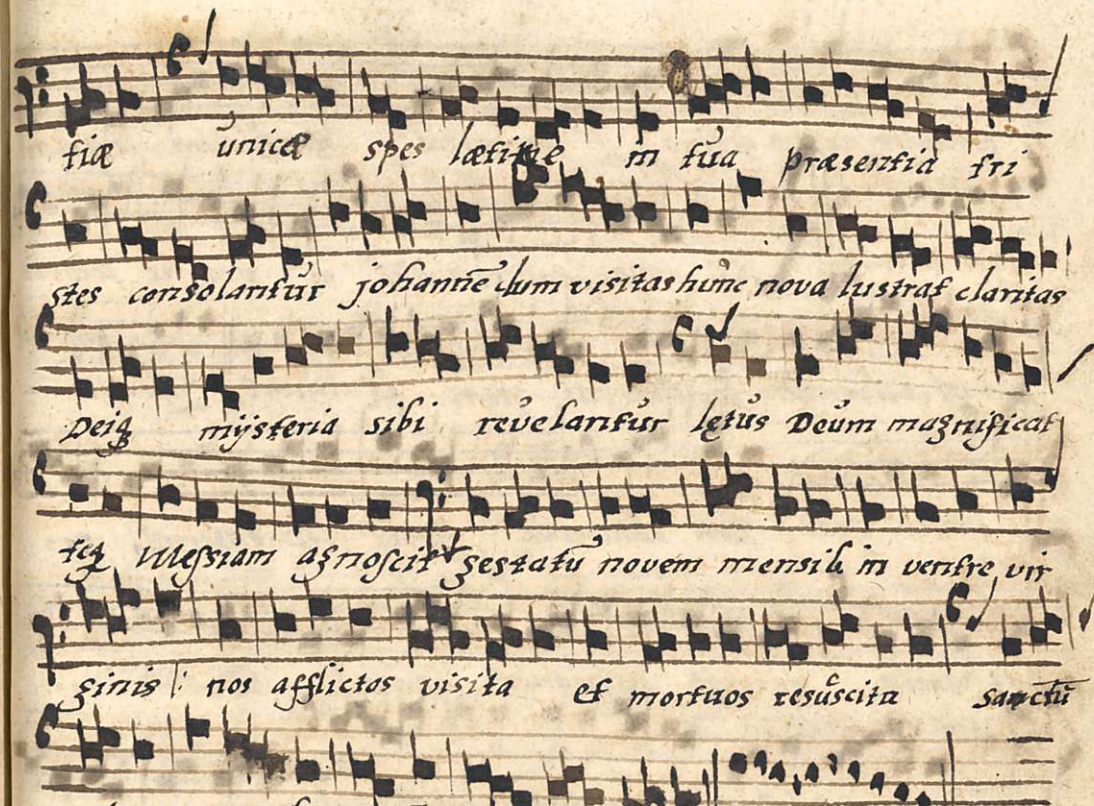 tiæ unicæ spes lætitiæ in tua præsentia tri
stes consolantur johannē dum visitas hunc nova lustrat claritas
Deiq mÿsteria sibi revelantur lętus Deum magnificat
teq Messiam agnoscit gestatū novem mensib in ventre vir
ginis nos afflictos visita et mortuos resuscita sanctū